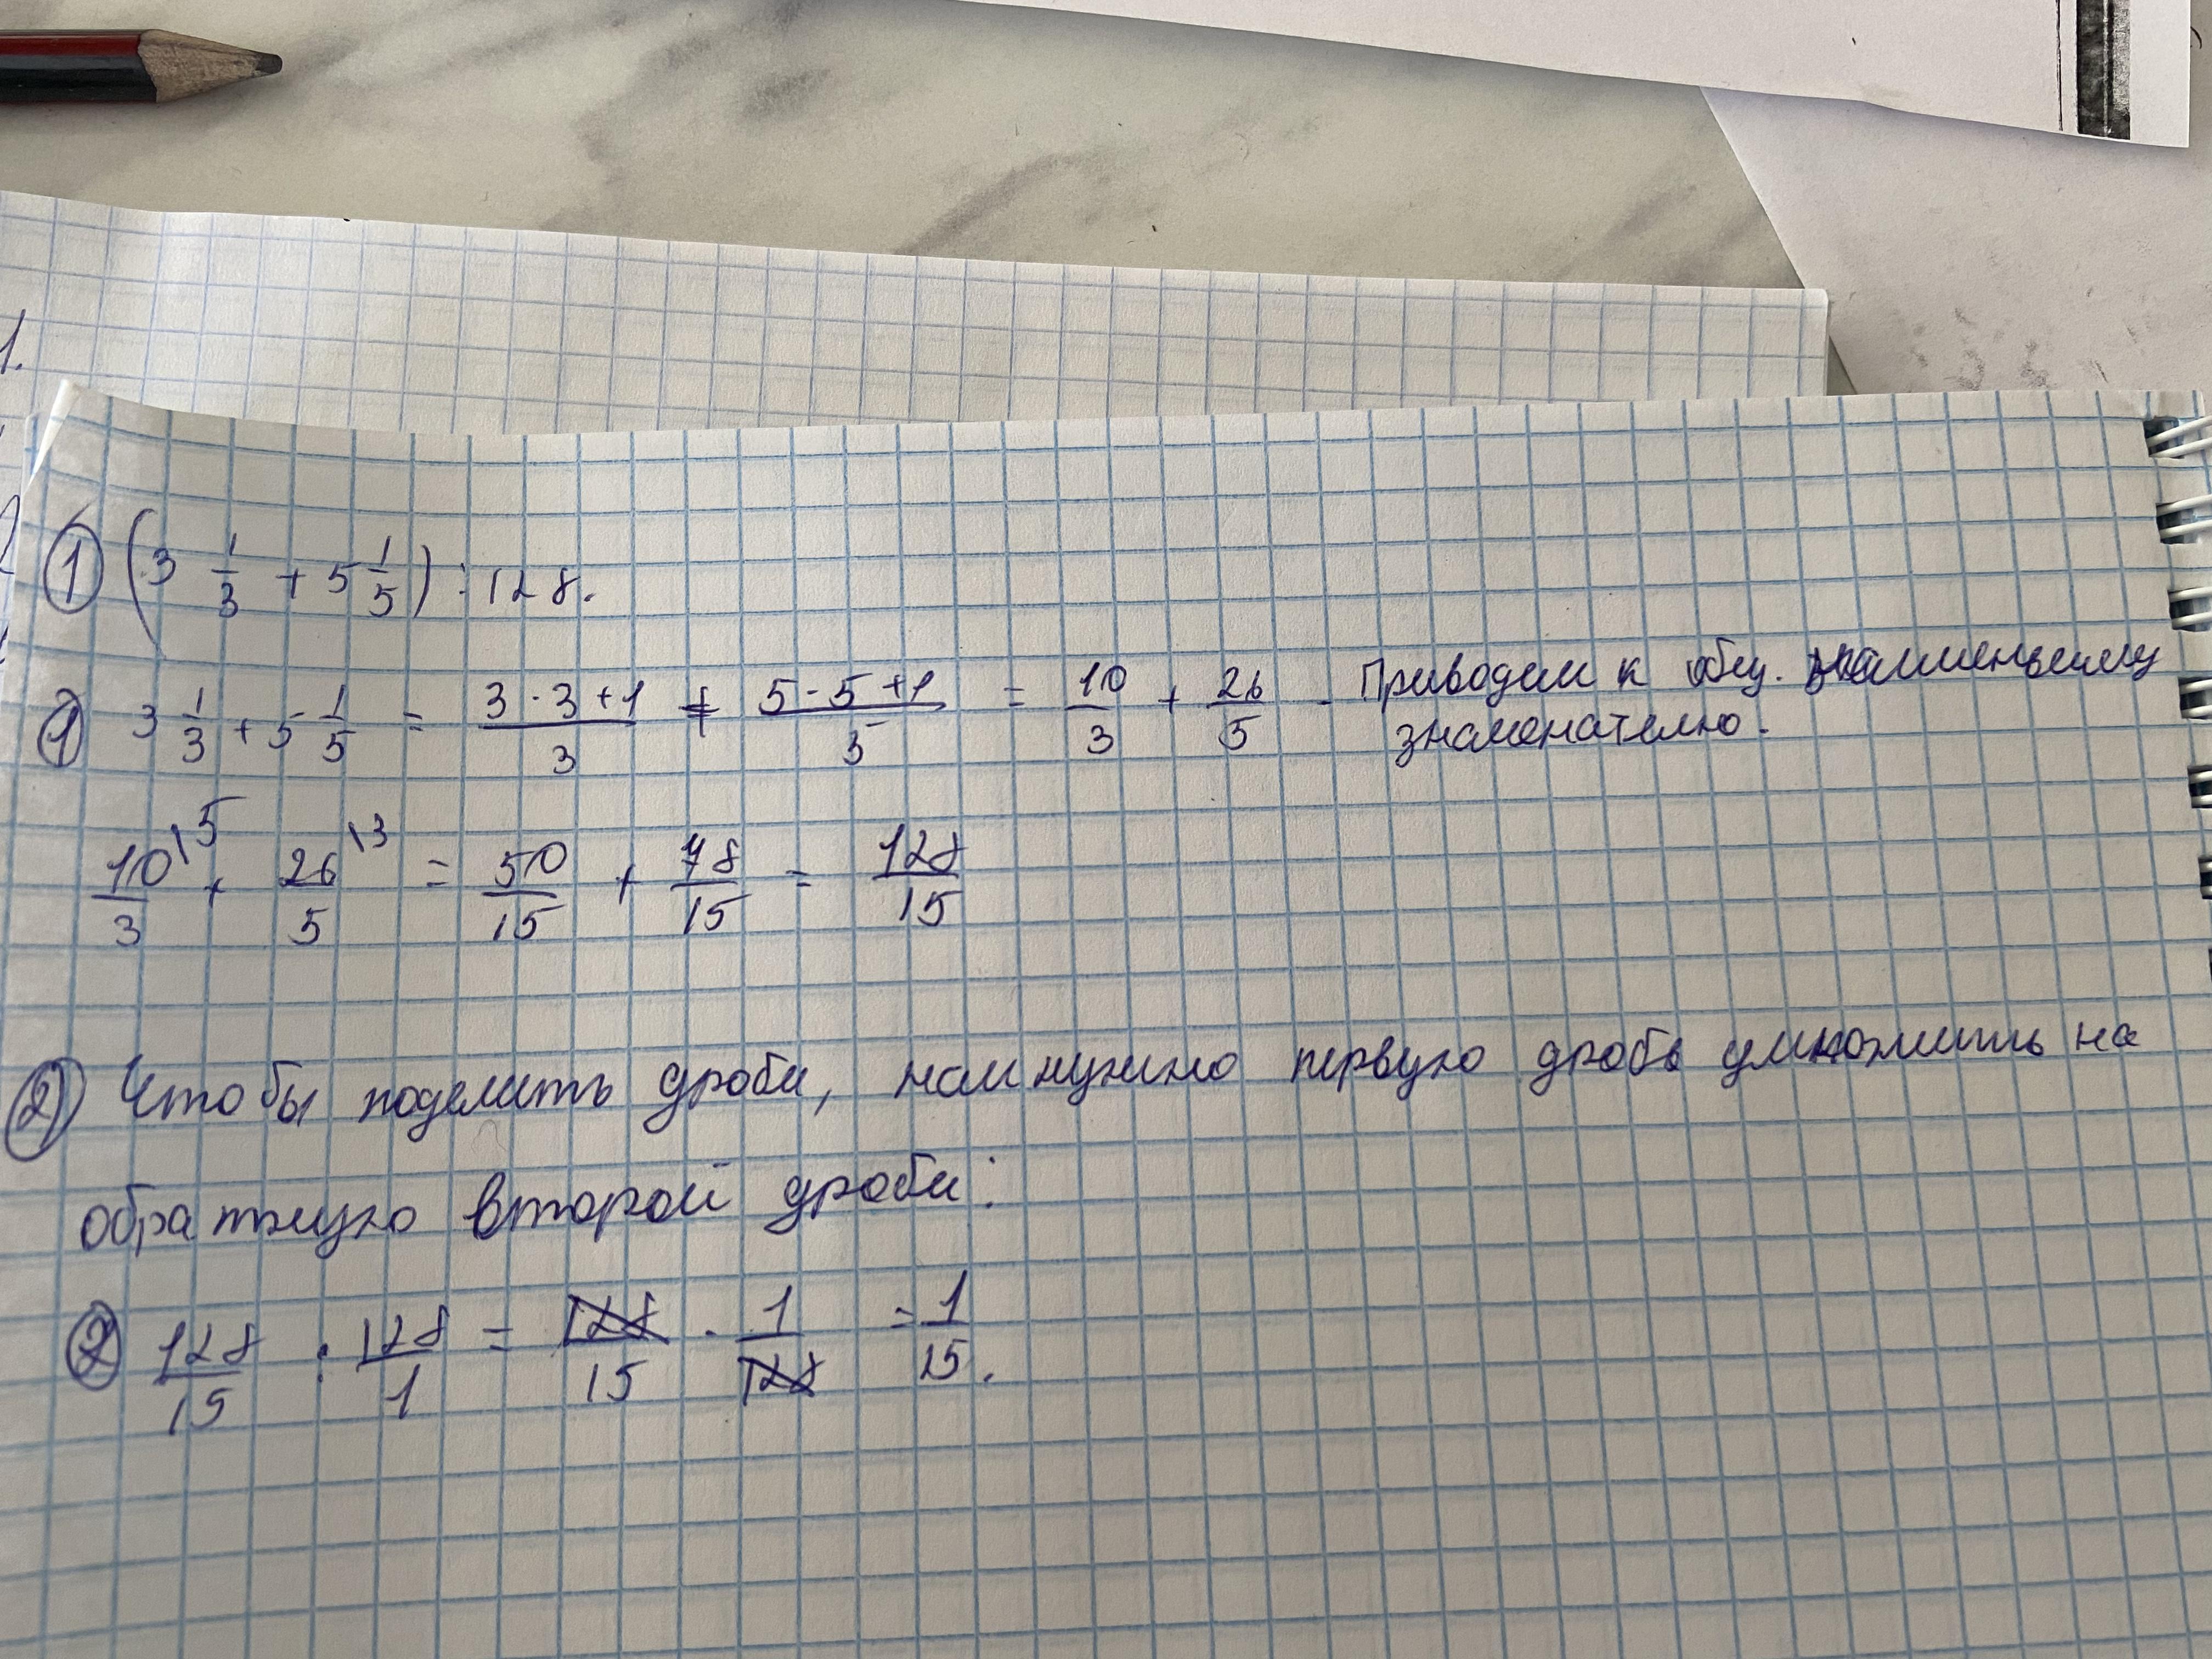 1.
① (3 1/3 + 5 1/5) : 128.
① 3 1/3 + 5 1/5 = (3 · 3 + 1)/3 + (5 · 5 + 1)/5 = 10/3 + 26/5 - Приводим к общ. наименьшему
знаменателю.
10/3 \5 + 26/5 \3 = 50/15 + 78/15 = 128/15
② Чтобы поделить дроби, нам нужно первую дробь умножить на
обратную второй дроби:
② 128/15 : 128/1 = 128/15 · 1/128 = 1/15.